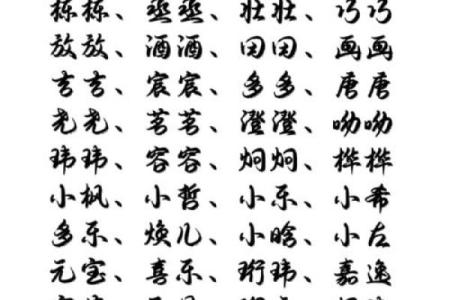 栋栋、燕燕、壮壮、巧巧
放放、酒酒、田田、画画
吉吉、宸宸、多多、唐唐
尧尧、茗茗、澄澄、呦呦
玮玮、容容、炯炯、桦桦
小枫、小哲、小乐、小希
多乐、焕儿、小晗、小左
元宝、喜乐、珩玮、嘉逸